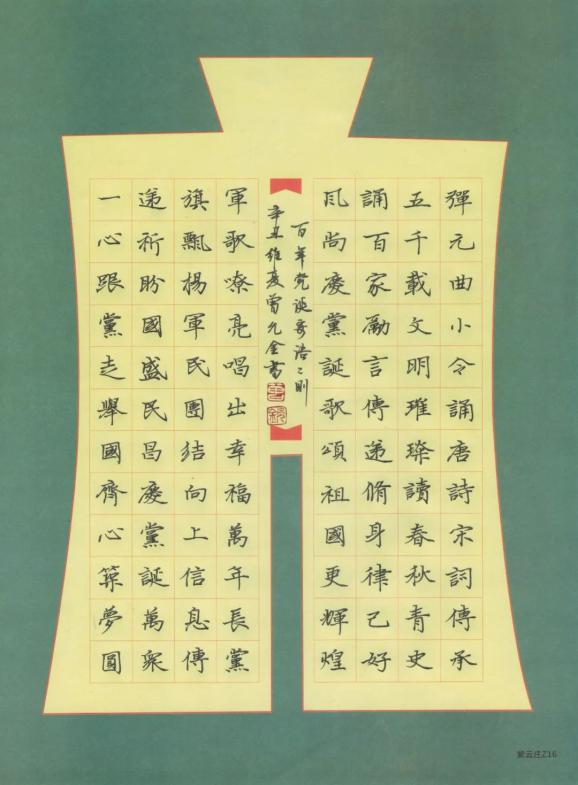 彈元曲小令誦唐詩宋詞傳承
五千載文明璀璨讀春秋青史
誦百家勵言傳递脩身律己好
風尚慶黨誕歌頌祖國更輝煌
百年党诞哥浩〻則
辛丑维夏曾允金書
軍歌嘹亮唱出幸福萬年長黨
旗飄揚軍民團结向上信息傳
递祈盼國盛民昌慶黨誕萬衆
一心跟黨走舉國齊心築夢圓
紫云庄Z16